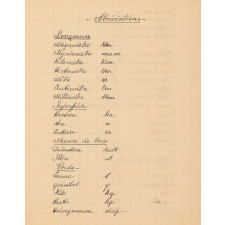 - Abréviations -
Longueurs
Mégamètre Mm
Myriamètre mam
Kilomètre Km
Hectomètre Hm
Mètre m
Centimètre cm
Millimètre mm
Superficie
Hectare ha
Are a
Centiare ca
Mesure de bois
Décastère dast
Stère st
Poids
tonne t
quintal q
Kilo kg
Hecto hg
Décagramme dag